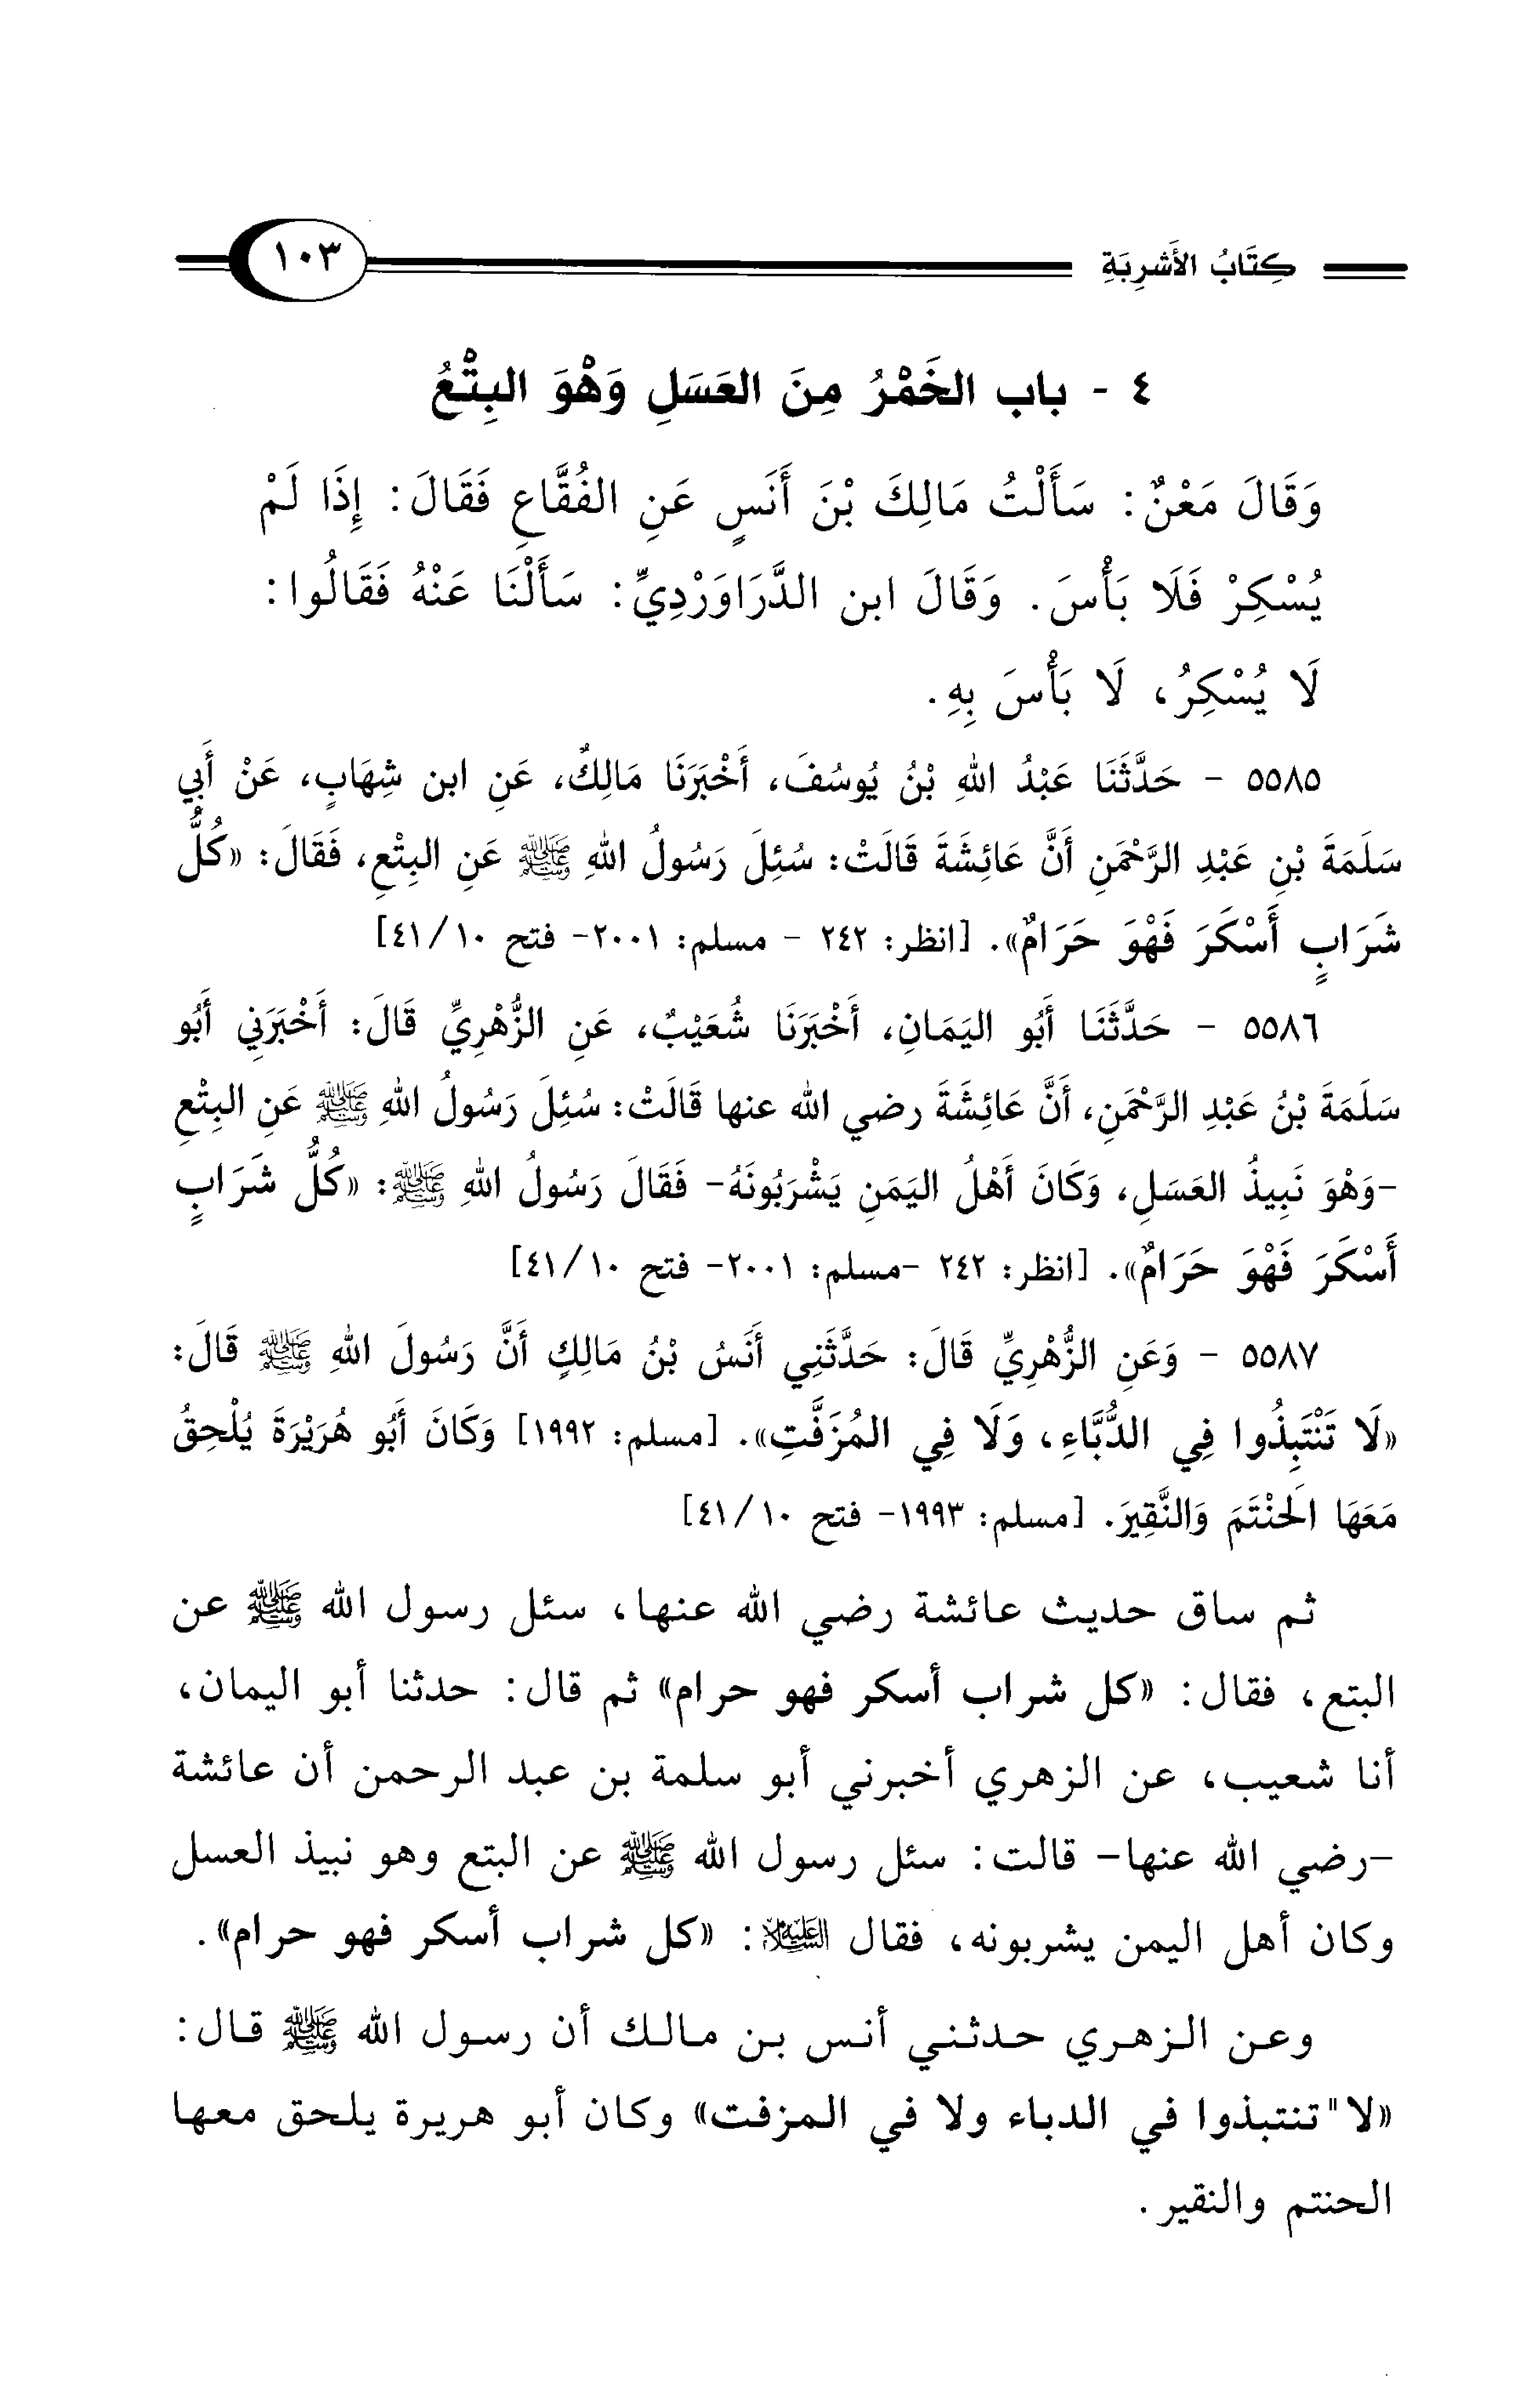 كِتَابُ الأَشرِبَةِ ١٠٣
٤ - باب الخَمْرُ مِنَ العَسَلِ وَهْوَ البِتْعُ
وَقَالَ مَعْنٌ: سَأَلْتُ مَالِكَ بْنَ أَنَسٍ عَنِ الفُقَّاعِ فَقَالَ: إِذَا لَمْ
يُسْكِرْ فَلَا بَأْسَ. وَقَالَ ابن الدَّرَاوَرْدِيِّ: سَأَلْنَا عَنْهُ فَقَالُوا:
لَا يُسْكِرُ، لَا بَأْسَ بِهِ.
٥٥٨٥ - حَدَّثَنَا عَبْدُ اللهِ بْنُ يُوسُفَ، أَخْبَرَنَا مَالِكٌ، عَنِ ابن شِهَابٍ، عَنْ أَبِي
سَلَمَةَ بْنِ عَبْدِ الرَّحْمَنِ أَنَّ عَائِشَةَ قَالَتْ: سُئِلَ رَسُولُ اللهِ ﷺ عَنِ البِتْعِ، فَقَالَ: «كُلُّ
شَرَابٍ أَسْكَرَ فَهْوَ حَرَامٌ». [انظر: ٢٤٢ - مسلم: ٢٠٠١- فتح ١٠/٤١]
٥٥٨٦ - حَدَّثَنَا أَبُو اليَمَانِ، أَخْبَرَنَا شُعَيْبٌ، عَنِ الزُّهْرِيِّ قَالَ: أَخْبَرَنِي أَبُو
سَلَمَةَ بْنُ عَبْدِ الرَّحْمَنِ، أَنَّ عَائِشَةَ رضي الله عنها قَالَتْ: سُئِلَ رَسُولُ اللهِ ﷺ عَنِ البِتْعِ
-وَهْوَ نَبِيذُ العَسَلِ، وَكَانَ أَهْلُ اليَمَنِ يَشْرَبُونَهُ- فَقَالَ رَسُولُ اللهِ ﷺ: «كُلُّ شَرَابٍ
أَسْكَرَ فَهْوَ حَرَامٌ». [انظر: ٢٤٢ -مسلم: ٢٠٠١- فتح ١٠/٤١]
٥٥٨٧ - وَعَنِ الزُّهْرِيِّ قَالَ: حَدَّثَنِي أَنَسُ بْنُ مَالِكٍ أَنَّ رَسُولَ اللهِ ﷺ قَالَ:
«لَا تَنْتَبِذُوا فِي الدُّبَّاءِ، وَلَا فِي المُزَفَّتِ». [مسلم: ١٩٩٢] وَكَانَ أَبُو هُرَيْرَةَ يُلْحِقُ
مَعَهَا الَحنْتَمَ وَالنَّقِيرَ. [مسلم: ١٩٩٣- فتح ١٠/٤١]
ثم ساق حديث عائشة رضي الله عنها، سئل رسول الله ﷺ عن
البتع، فقال: «كل شراب أسكر فهو حرام» ثم قال: حدثنا أبو اليمان،
أنا شعيب، عن الزهري أخبرني أبو سلمة بن عبد الرحمن أن عائشة
-رضي الله عنها- قالت: سئل رسول الله ﷺ عن البتع وهو نبيذ العسل
وكان أهل اليمن يشربونه، فقال عليه السلام: «كل شراب أسكر فهو حرام».
وعن الزهري حدثني أنس بن مالك أن رسول الله ﷺ قال:
«لا"تنتبذوا في الدباء ولا في المزفت» وكان أبو هريرة يلحق معها
الحنتم والنقير.